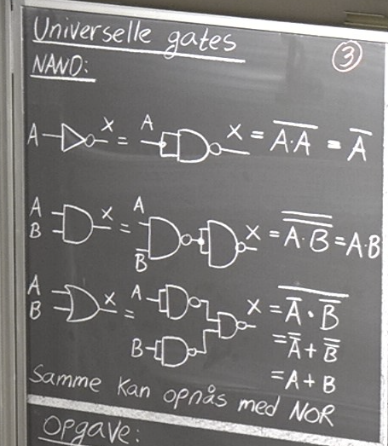 Universelle gates
③
NAND:
A X = A X = \overline{A·A} = \overline{A}
A B X = A B X = \overline{\overline{A·B}} = A·B
A B X = A B X = \overline{\overline{A}·\overline{B}}
= \overline{\overline{A}} + \overline{\overline{B}}
= A + B
Samme kan opnås med NOR
Opgave: